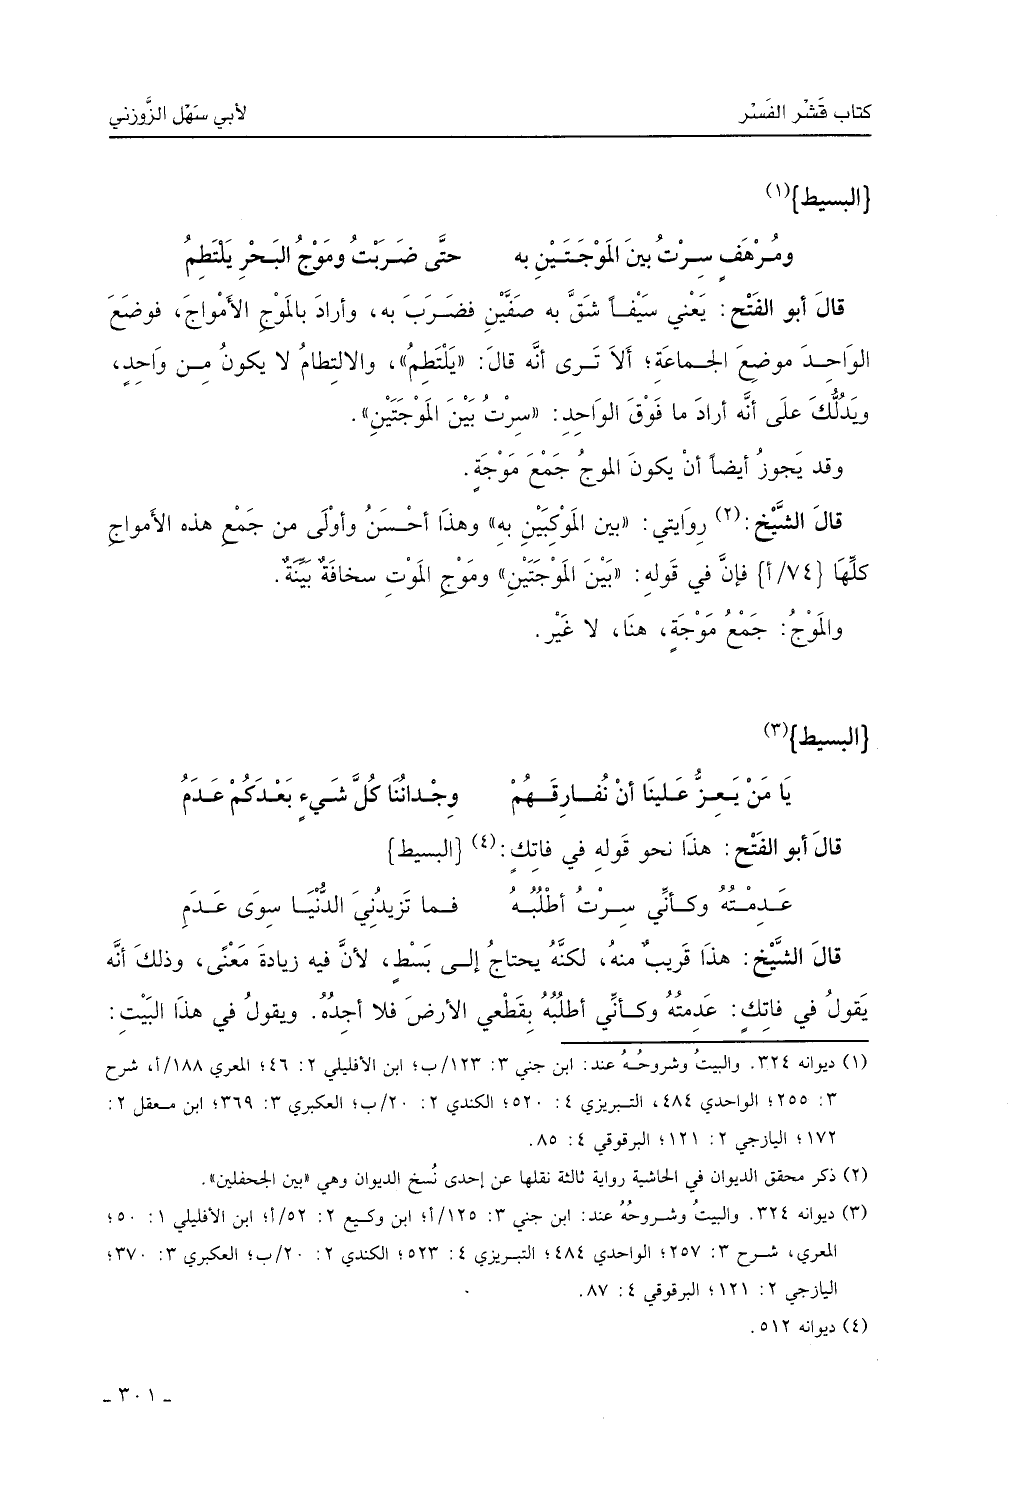 كتاب قَشْر الفَسْر لأبي سَهْل الزَّوزني
{البسيط}(١)
ومُرْهَفٍ سِرْتُ بينَ المَوْجَتَيْنِ به حتَّى ضَرَبْتُ ومَوْجُ البَحْرِ يَلْتَطِمُ
قالَ أبو الفَتْح: يَعْني سَيْفاً شَقَّ به صَفَّيْنِ فضَرَبَ به، وأرادَ بالمَوْجِ الأَمْواجَ، فوضَعَ
الوَاحِدَ موضعَ الجماعَةِ؛ ألاَ تَرى أنَّه قالَ: «يَلْتَطِمُ»، والالتِطامُ لا يكونُ مِن وَاحِدٍ،
ويَدُلُّكَ علَى أنَّه أرادَ ما فَوْقَ الوَاحِدِ: «سِرْتُ بَيْنَ المَوْجَتَيْنِ».
وقد يَجوزُ أيضاً أنْ يكونَ الموجُ جَمْعَ مَوْجَةٍ.
قالَ الشَّيْخ:(٢) رِوَايتي: «بين المَوْكِبَيْنِ بِهِ» وهذَا أحْسَنُ وأوْلَى من جَمْعِ هذه الأَمواجِ
كلِّهَا {٧٤/أ} فإنَّ في قَولِهِ: «بَيْنَ المَوْجَتَيْنِ» ومَوْجِ المَوْتِ سخافَةٌ بَيِّنَةٌ.
والمَوْجُ: جَمْعُ مَوْجَةٍ، هنَا، لا غَيْر.
{البسيط}(٣)
يَا مَنْ يَعِزُّ عَلينَا أنْ نُفَارِقَهُمْ وِجْدانُنَا كُلَّ شَيءٍ بَعْدَكُمْ عَدَمُ
قالَ أبو الفَتْح: هذَا نحو قَوله في فاتِكٍ:(٤) {البسيط}
عَدِمْتُهُ وكأنِّي سِرْتُ أطْلُبُهُ فما تَزيدُنِيَ الدُّنْيَا سِوَى عَدَمِ
قالَ الشَّيْخ: هذَا قَريبٌ منهُ، لكنَّهُ يحتاجُ إلى بَسْطٍ، لأنَّ فيه زيادةَ مَعْنًى، وذلكَ أنَّه
يَقولُ في فاتِكٍ: عَدِمتُهُ وكأنِّي أطلُبُهُ بقَطْعي الأرضَ فلا أجدُهُ. ويقولُ في هذَا البَيْتِ:
(١) ديوانه ٣٢٤. والبيتُ وشروحُهُ عند: ابن جني ٣: ١٢٣/ب؛ ابن الأفليلي ٢: ٤٦؛ المعري ١٨٨/أ، شرح
٣: ٢٥٥؛ الواحدي ٤٨٤، التبريزي ٤: ٥٢٠؛ الكندي ٢: ٢٠/ب؛ العكبري ٣: ٣٦٩؛ ابن معقل ٢:
١٧٢؛ اليازجي ٢: ١٢١؛ البرقوقي ٤: ٨٥.
(٢) ذكر محقق الديوان في الحاشية رواية ثالثة نقلها عن إحدى نُسخ الديوان وهي «بين الجحفلين».
(٣) ديوانه ٣٢٤. والبيتُ وشروحُهُ عند: ابن جني ٣: ١٢٥/أ؛ ابن وكيع ٢: ٥٢/أ؛ ابن الأفليلي ١: ٥٠؛
المعري، شرح ٣: ٢٥٧؛ الواحدي ٤٨٤؛ التبريزي ٤: ٥٢٣؛ الكندي ٢: ٢٠/ب؛ العكبري ٣: ٣٧٠؛
اليازجي ٢: ١٢١؛ البرقوقي ٤: ٨٧.
(٤) ديوانه ٥١٢.
- ٣٠١ -